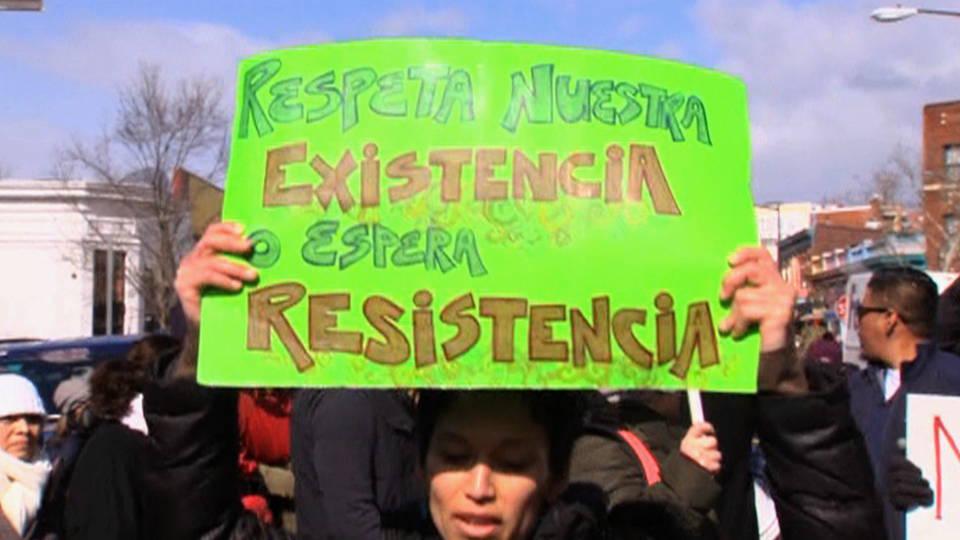 RESPETA NUESTRA
EXiSTENCiA
O ESPERA
RESiSTENCiA
N